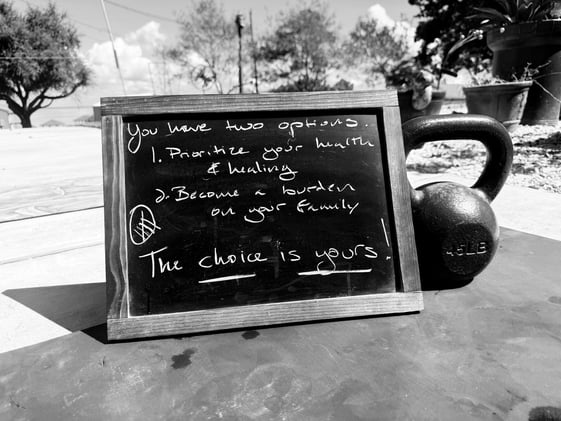 You have two options.
1. Prioritize your health
& healing
2. Become a burden
on your family
The choice is yours!
45LB